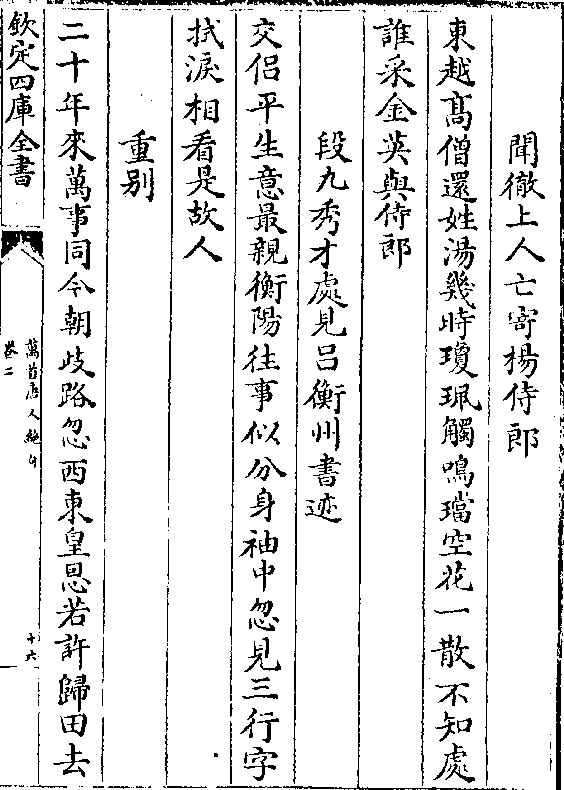 聞徹上人亡寄楊侍郎
東越髙僧還姓湯幾時瓊珮觸鳴璫空花一散不知處
誰采金英與侍郎
段九秀才處見吕衡州書迹
交侣平生意最親衡陽往事似分身袖中忽見三行字
拭淚相看是故人
重别
二十年來萬事同今朝歧路忽西東皇恩若許歸田去
欽定四庫全書
萬首唐人絶句
卷二
十六